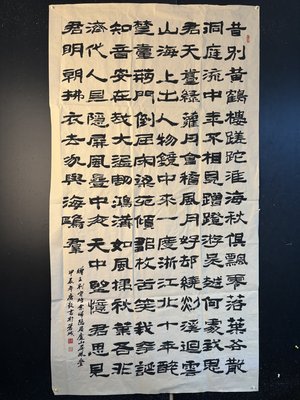 昔別黃鶴樓蹉跎淮海秋俱飄零落葉各散
洞庭流中年不相見蹭蹬游吳越何處我思
君天臺綠蘿月會稽風月好却繞剡溪迴雲
山海上出人物鏡中來一度浙江北十年醉
楚臺荊門倒屈宋梁苑傾鄒枚苦笑我誇誕
知音安在哉大盜割鴻溝如風掃秋葉吾非
濟代人且隱屏風疊中夜天中望憶君思見
君明朝拂衣去永與海鷗羣
贈王判官時余歸隱居廬山屏風疊
甲辰年